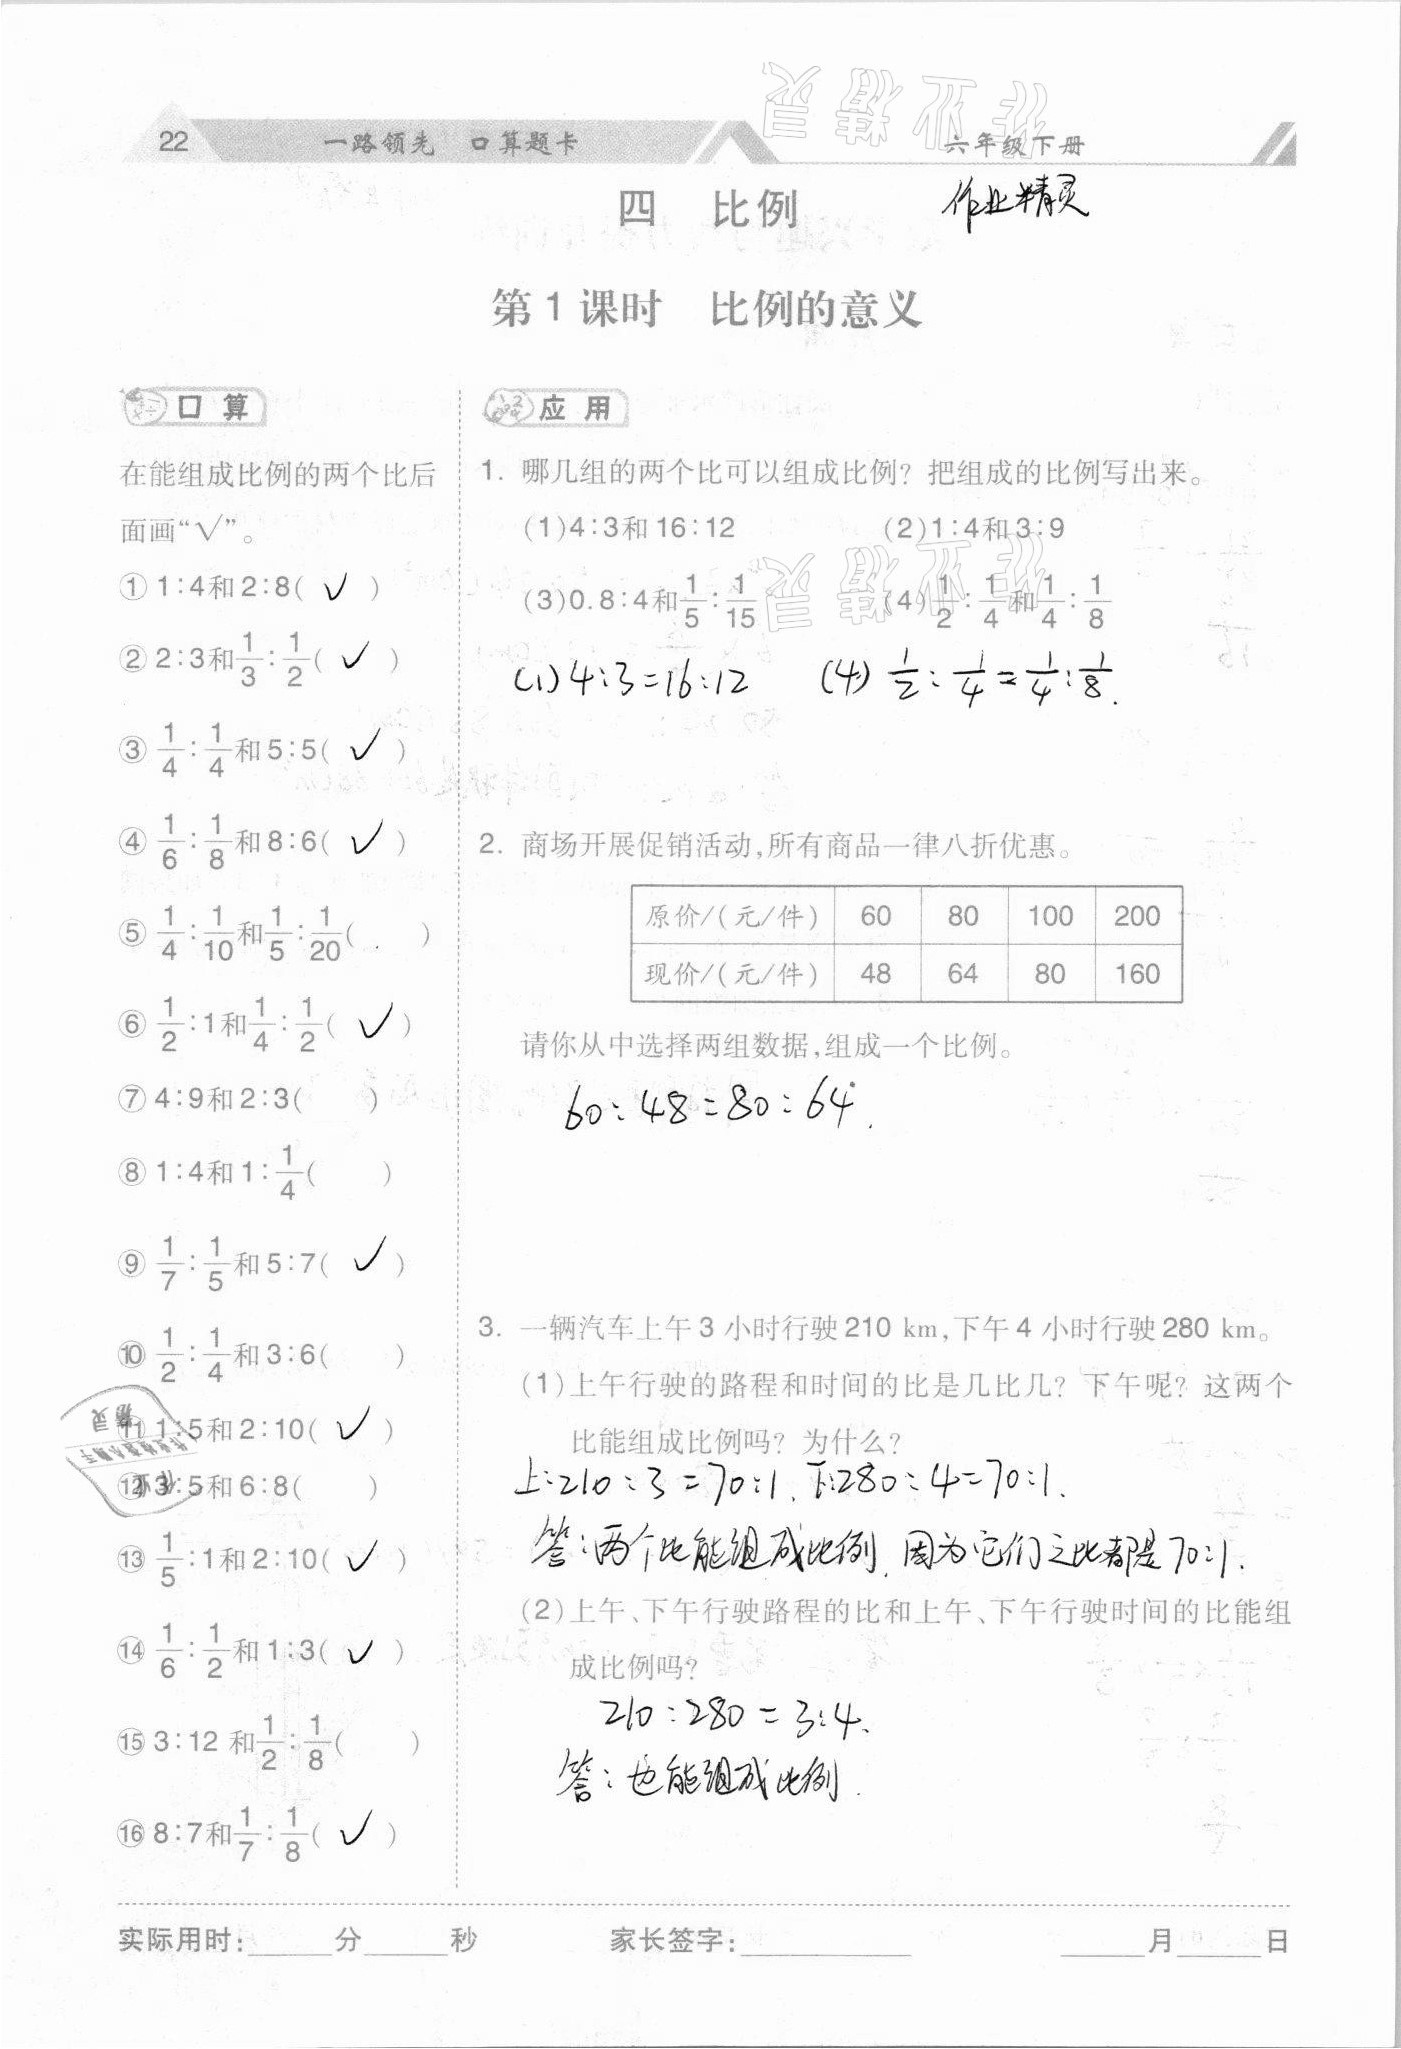 22 一路领先 口算题卡 六年级下册
作业精灵
作业精灵
四 比例
第1课时 比例的意义
口算
在能组成比例的两个比后
面画“√”。
① 1:4和2:8( √ )
② 2:3和1/3:1/2( √ )
③ 1/4:1/4和5:5( √ )
④ 1/6:1/8和8:6( √ )
⑤ 1/4:1/10和1/5:1/20( )
⑥ 1/2:1和1/4:1/2( √ )
⑦ 4:9和2:3( )
⑧ 1:4和1:1/4( )
⑨ 1/7:1/5和5:7( √ )
⑩ 1/2:1/4和3:6( )
⑪ 1:5和2:10( √ )
⑫ 3:5和6:8( )
⑬ 1/5:1和2:10( √ )
⑭ 1/6:1/2和1:3( √ )
⑮ 3:12 和1/2:1/8( )
⑯ 8:7和1/7:1/8( √ )
应用
1. 哪几组的两个比可以组成比例？把组成的比例写出来。
(1)4:3和16:12 (2)1:4和3:9
作业精灵
(3)0.8:4和1/5:1/15 (4)1/2:1/4和1/4:1/8
(1)4:3=16:12 (4) 1/2:1/4=1/4:1/8.
2. 商场开展促销活动,所有商品一律八折优惠。
原价/(元/件) 60 80 100 200
现价/(元/件) 48 64 80 160
请你从中选择两组数据,组成一个比例。
60:48=80:64.
3. 一辆汽车上午3小时行驶210 km,下午4小时行驶280 km。
(1)上午行驶的路程和时间的比是几比几？下午呢？这两个
比能组成比例吗？为什么？
上:210:3=70:1. 下:280:4=70:1.
答:两个比能组成比例.因为它们之比都是70:1.
(2)上午、下午行驶路程的比和上午、下午行驶时间的比能组
成比例吗？
210:280=3:4.
答:也能组成比例.
实际用时:______分______秒 家长签字:____________ ______月______日